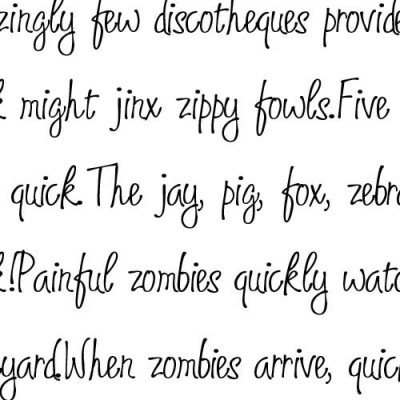 zingly few discotheques provide
k might jinx zippy fowls.Five
quick.The jay, pig, fox, zebra
k!Painful zombies quickly watc
yard.When zombies arrive, quic